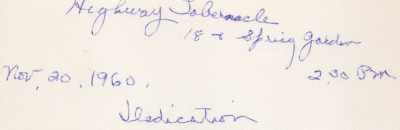 Highway Tabernacle
18 & Spring Garden
Nov. 20, 1960. 2.30 P.m
Dedication